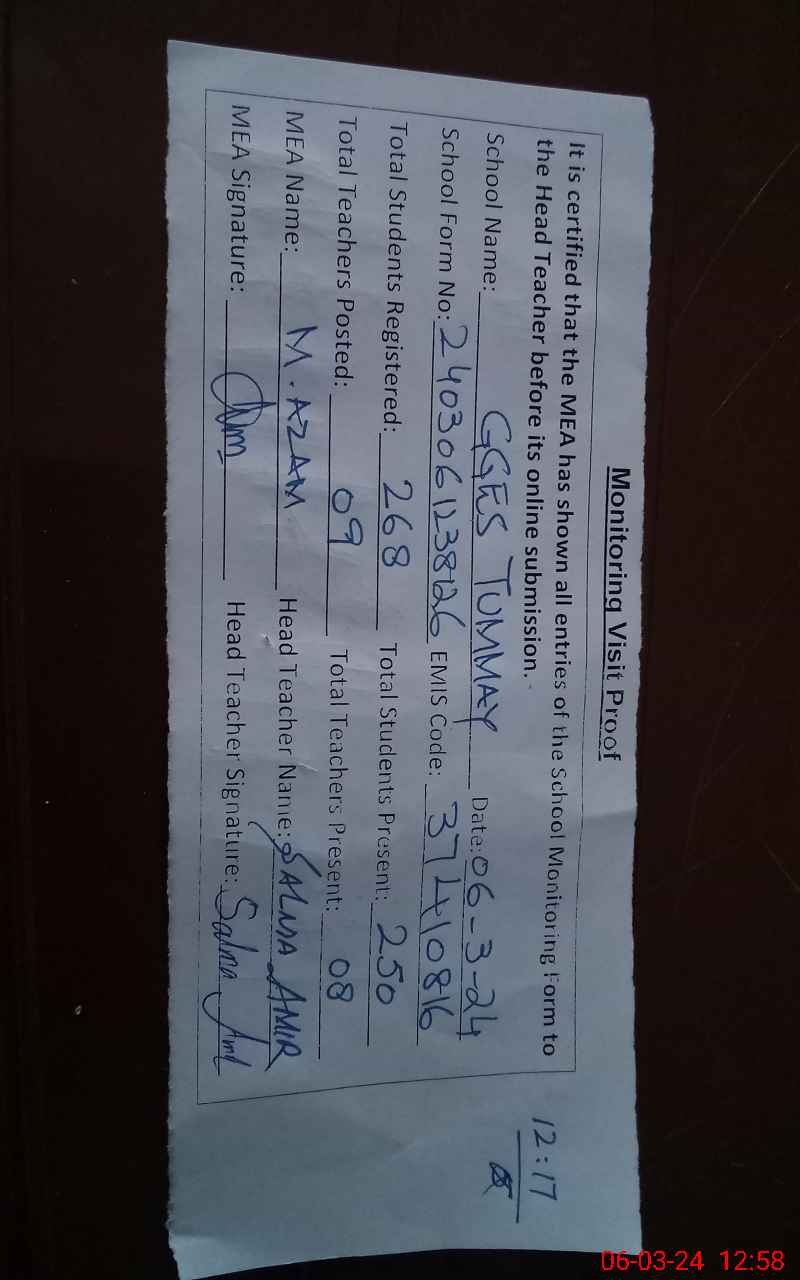 Monitoring Visit Proof
It is certified that the MEA has shown all entries of the School Monitoring Form to
the Head Teacher before its online submission.
School Name: GGES TUMMAY Date: 06-3-24
School Form No: 2403061238126 EMIS Code: 37410816
Total Students Registered: 268 Total Students Present: 250
Total Teachers Posted: 09 Total Teachers Present: 08
MEA Name: M. AZAM Head Teacher Name: SALMA AMIR
MEA Signature: Head Teacher Signature: Salma
12:17
06-03-24 12:58